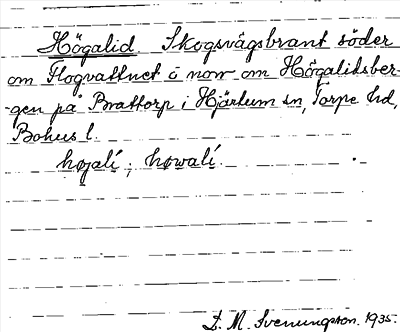 Högalid. Skogsvägsbrant söder
om Flogvattnet o norr om Högalidsber-
-gen på Brattorp i Hjärtum sn, Torpe hd,
Bohus l.
høgalí; høwalí.
D. M. Svenungson. 1935.